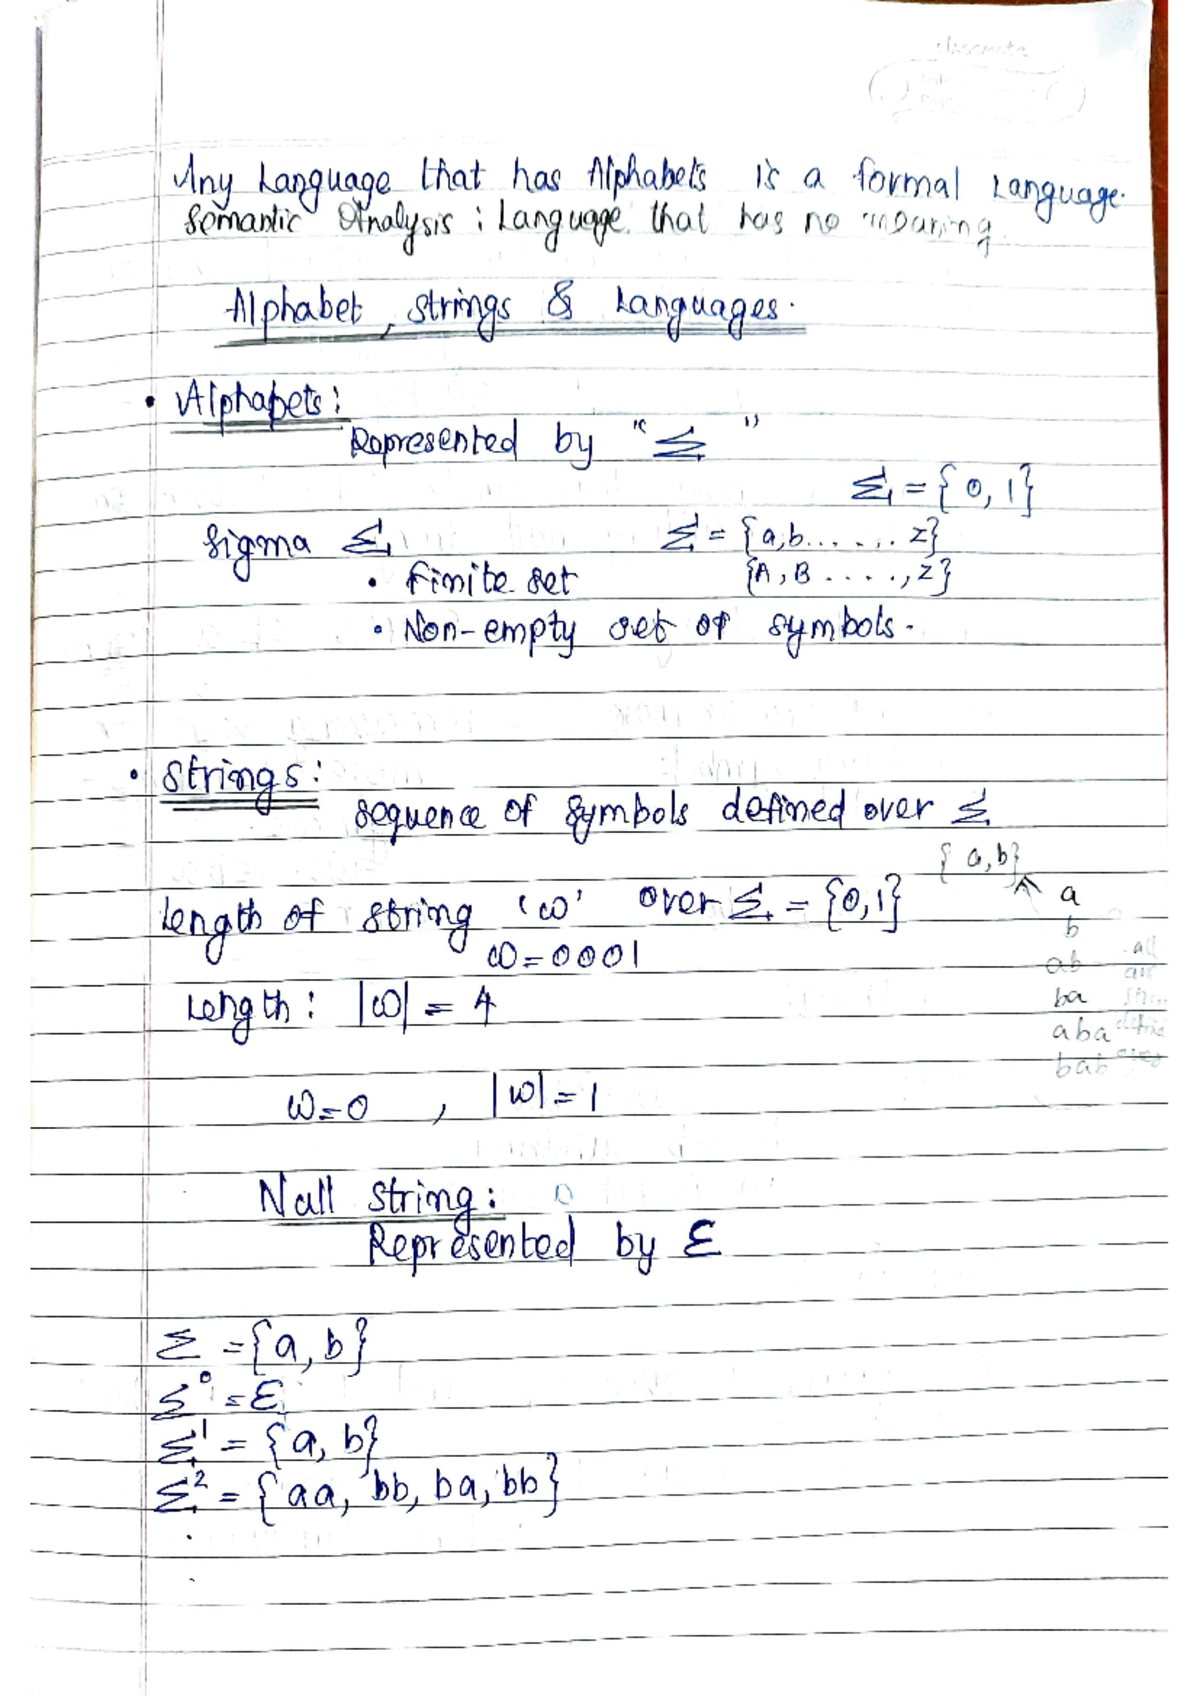 classmate
Any Language that has Alphabets is a formal Language.
Semantic Analysis : Language that has no meaning.
Alphabet, strings & Languages.
• Alphabets:
Represented by "Σ"
Σ = {0, 1}
Sigma Σ Σ = {a,b......z}
• Finite set {A, B ....,Z}
• Non-empty set of symbols.
• Strings:
sequence of symbols defined over Σ
{a,b}
Length of string 'ω' over Σ = {0,1} a
b
ω = 0001
ab all
Length: |ω| = 4 ba
aba
bab
ω=0 , |ω|=1
Null string:
Represented by ε
Σ = {a, b}
Σ⁰ = ε
Σ¹ = {a, b}
Σ² = {aa, bb, ba, bb}